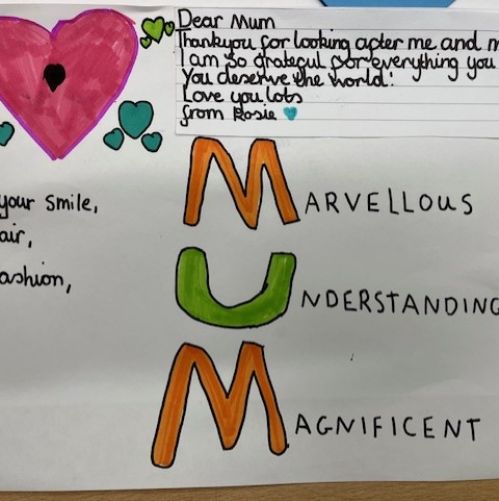 Dear Mum
Thankyou for looking after me and
I am so grateful for everything you
You deserve the world!
Love you lots
from Rosie
your smile,
air,
ashion,
MARVELLOUS
UNDERSTANDING
MAGNIFICENT